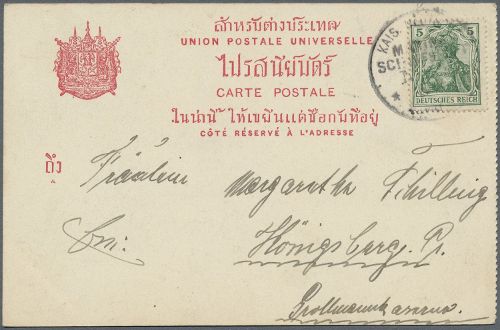 สำหรับต่างประเทศ
UNION POSTALE UNIVERSELLE
ไปรสนียบัตร์
CARTE POSTALE
ในน่านี้ ให้เขียนแต่ชื่อกับที่อยู่
CÔTÉ RÉSERVÉ À L'ADRESSE
KAIS.
5 5
DEUTSCHES REICH
ถึง
Fräulein Margarethe Schilling
Königsberg. Pr.